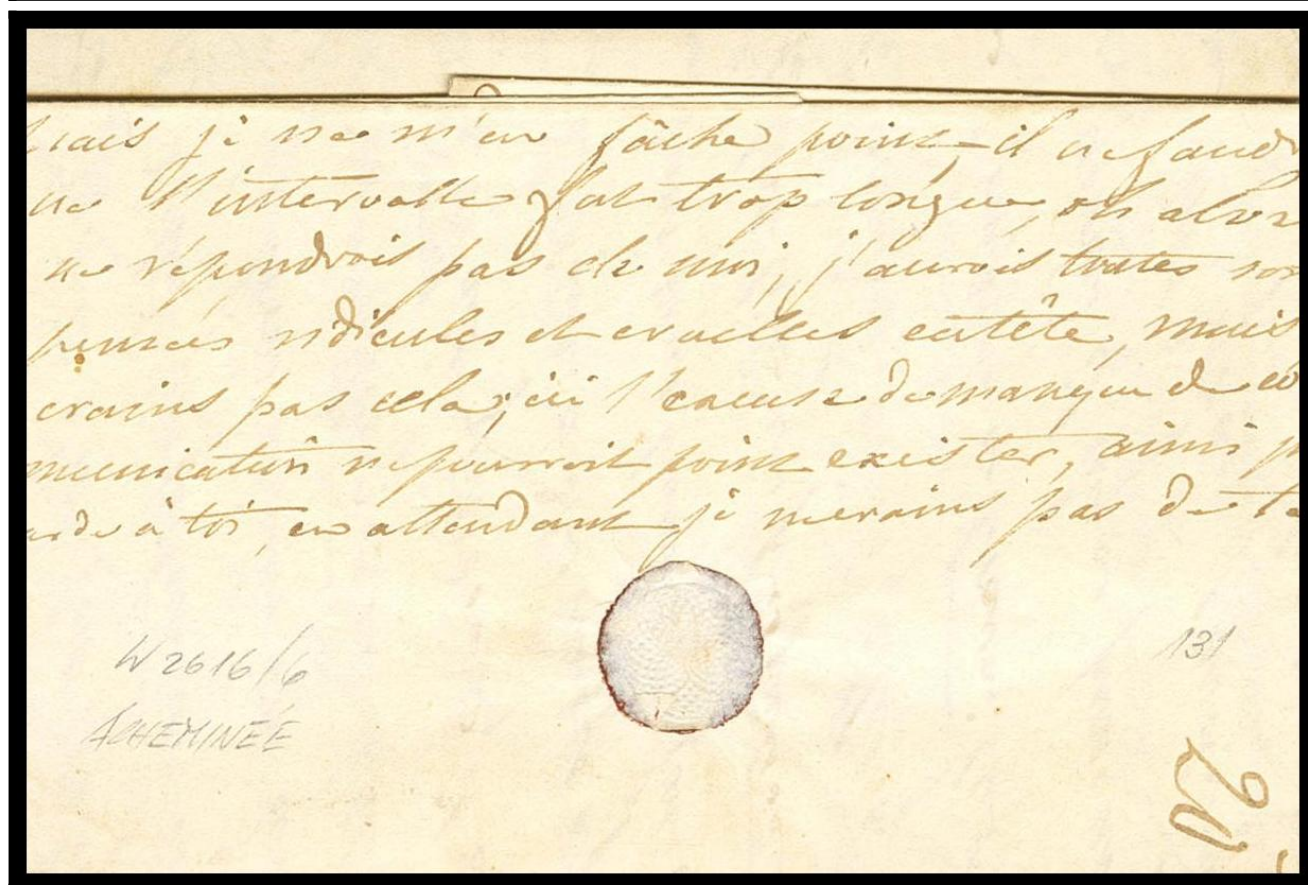 mais je ne m'en fâche point, il ne faud
ne l'intervalle fut trop longue, oh alors
ne répondrois pas de moi, j'aurois toutes
pensées ridicules et cruelles en tête, mais
crains pas cela; ici l'excuse du manque de co
munication ne pourroit point exister, ainsi
arde à toi, en attendant je ne crains pas de
W 2616/6
ACHEMINÉE
131
20